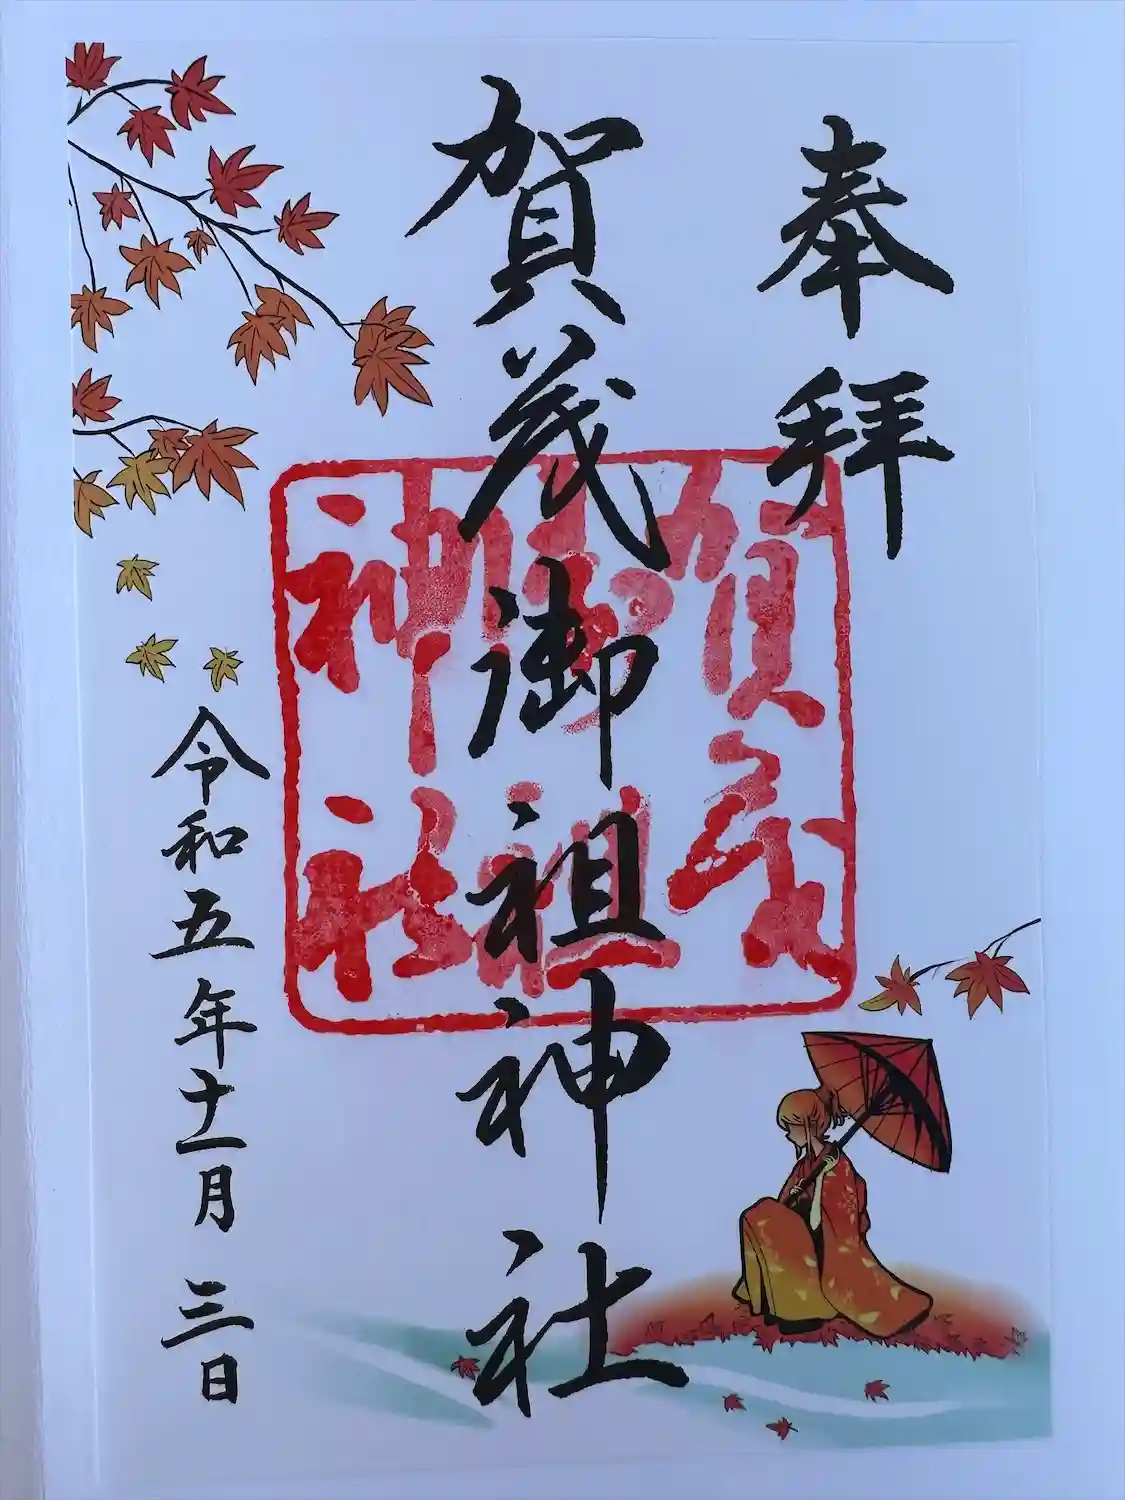 奉拝
賀茂御祖神社
賀茂
御祖
神社
令和五年十一月三日